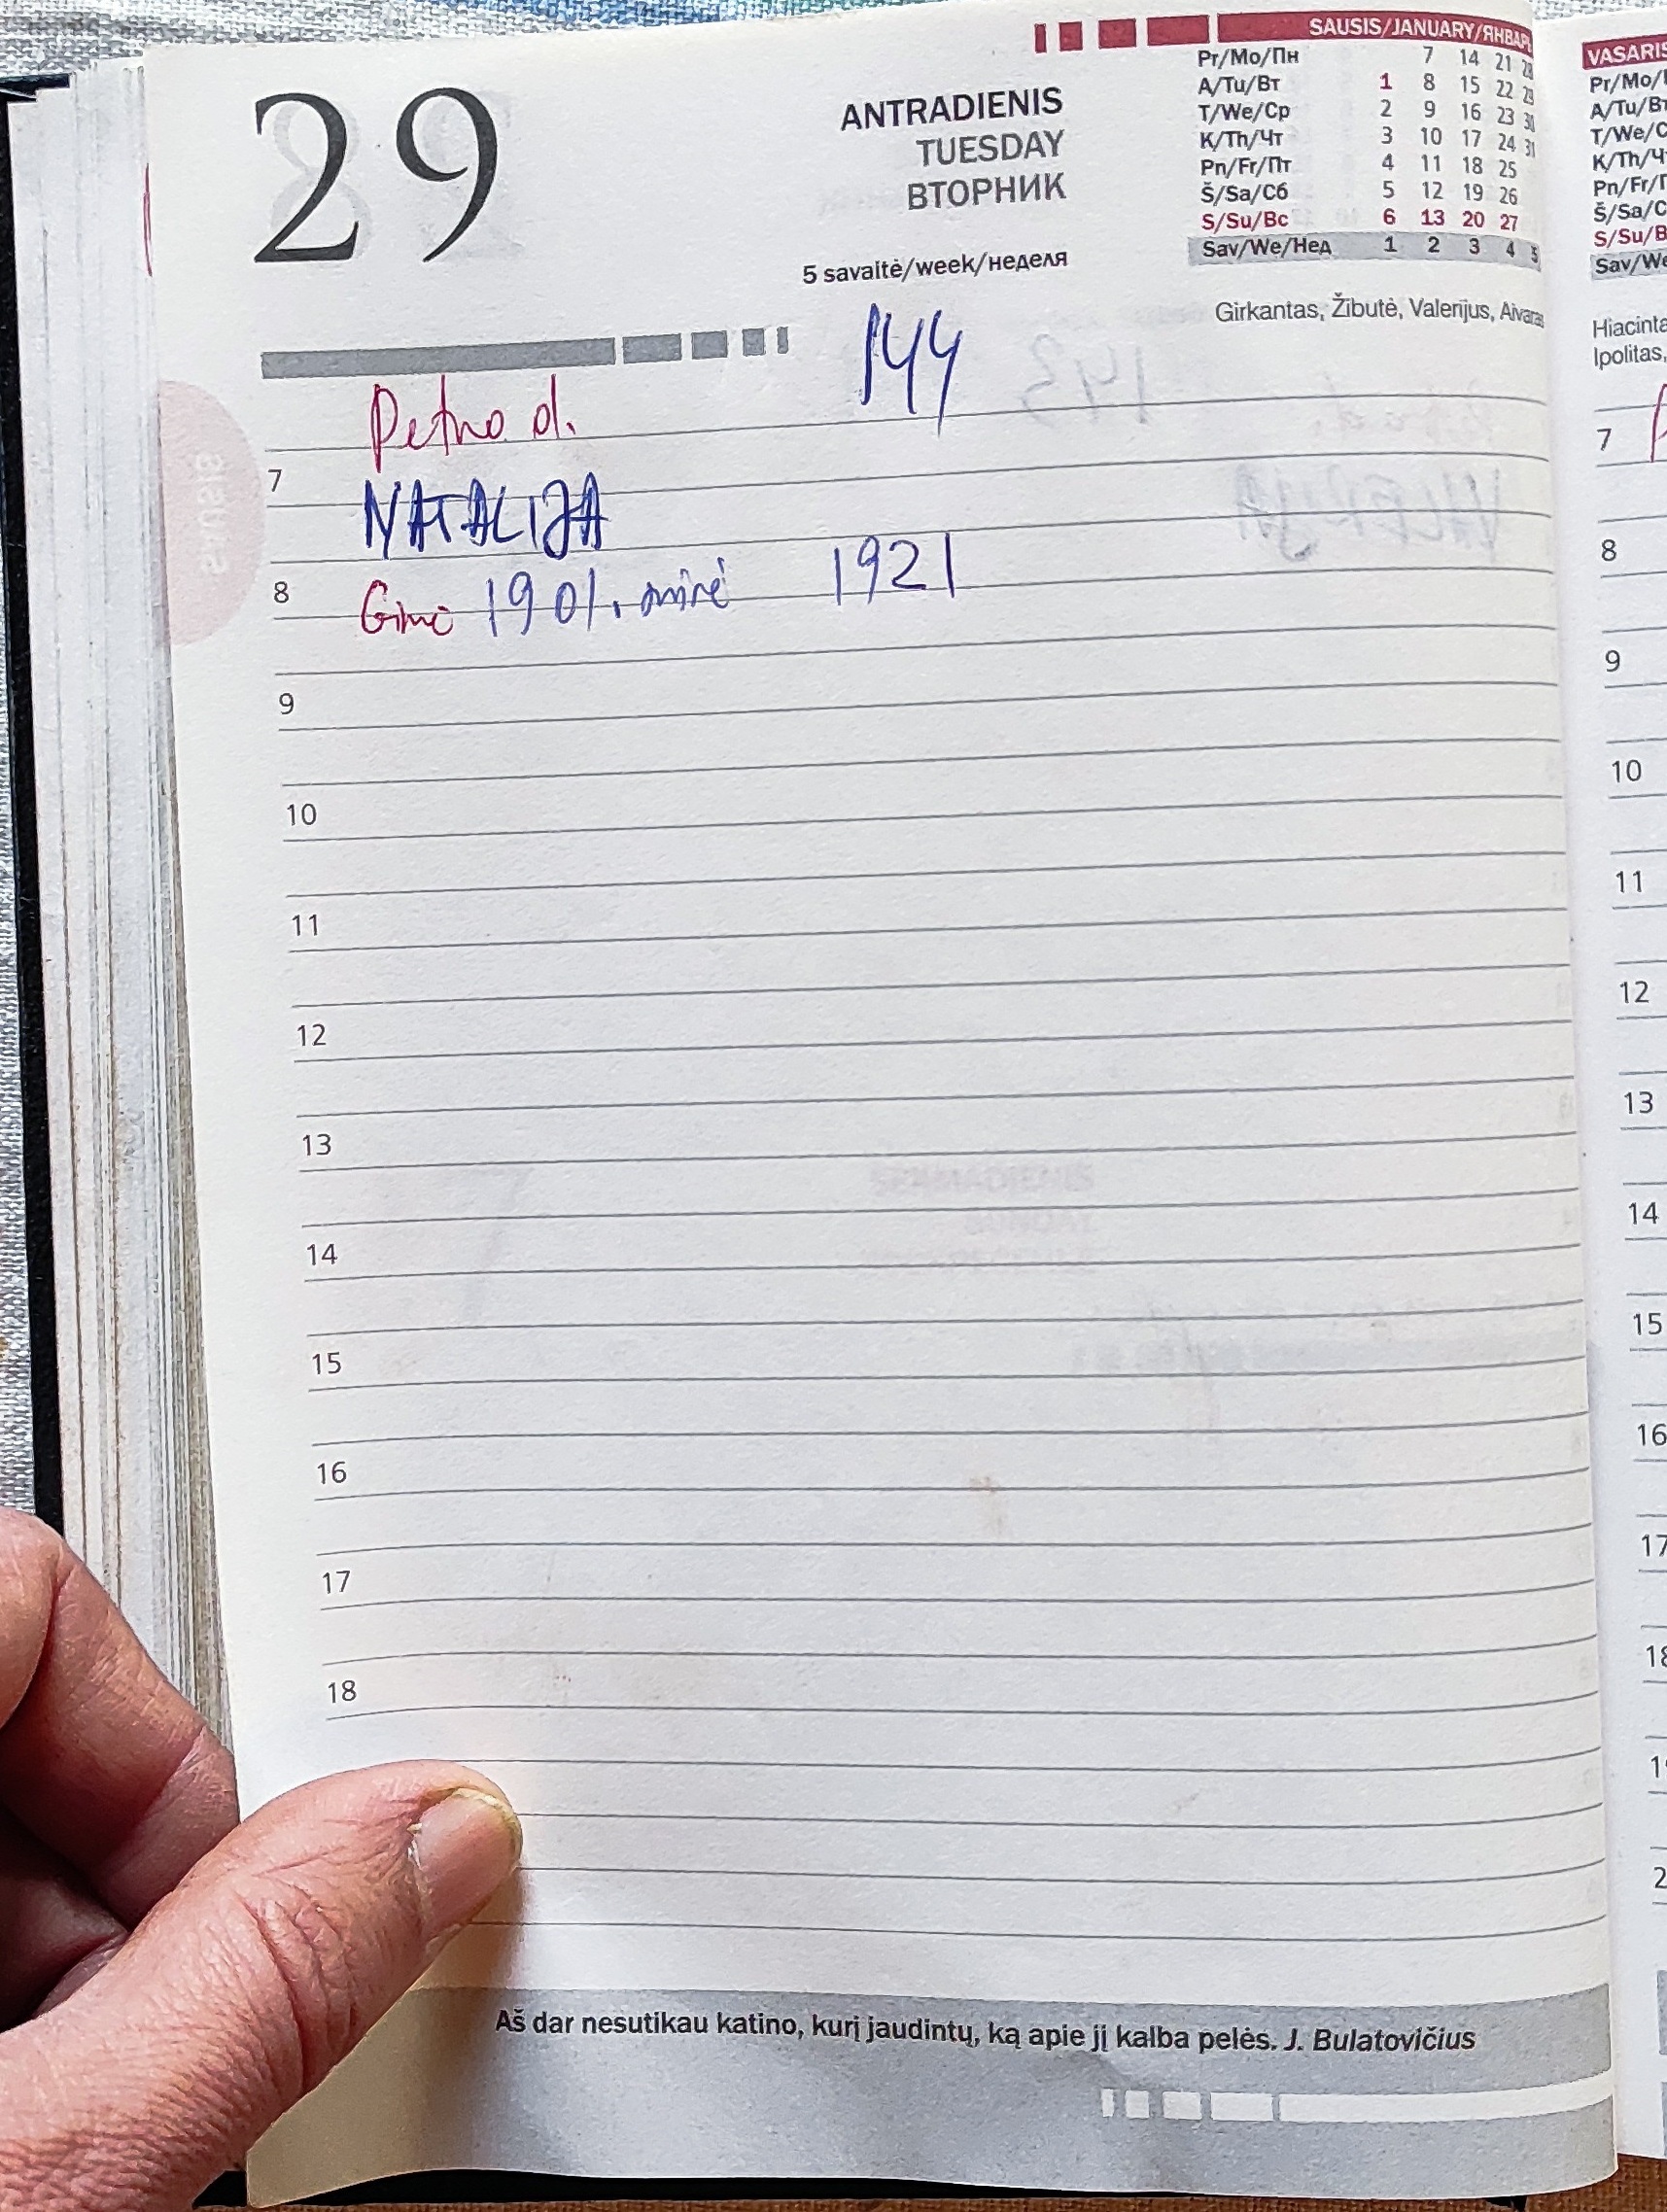 29
ANTRADIENIS
TUESDAY
ВТОРНИК
5 savaitė/week/неделя
SAUSIS/JANUARY/ЯНВАРЬ
Pr/Mo/Пн 7 14 21 28
A/Tu/Вт 1 8 15 22 29
T/We/Ср 2 9 16 23 30
K/Th/Чт 3 10 17 24 31
Pn/Fr/Пт 4 11 18 25
Š/Sa/Сб 5 12 19 26
S/Su/Вс 6 13 20 27
Sav/We/Нед 1 2 3 4 5
Girkantas, Žibutė, Valerijus, Aivaras
144
Petro d.
7
NATALIJA
8 Gimė 1901. mirė 1921
9
10
11
12
13
14
15
16
17
18
Aš dar nesutikau katino, kurį jaudintų, ką apie jį kalba pelės. J. Bulatovičius
VASARIS
Pr/Mo/
A/Tu/Вт
T/We/С
K/Th/Ч
Pn/Fr/П
Š/Sa/С
S/Su/В
Sav/We
Hiacinta
Ipolitas,
7
8
9
10
11
12
13
14
15
16
17
18